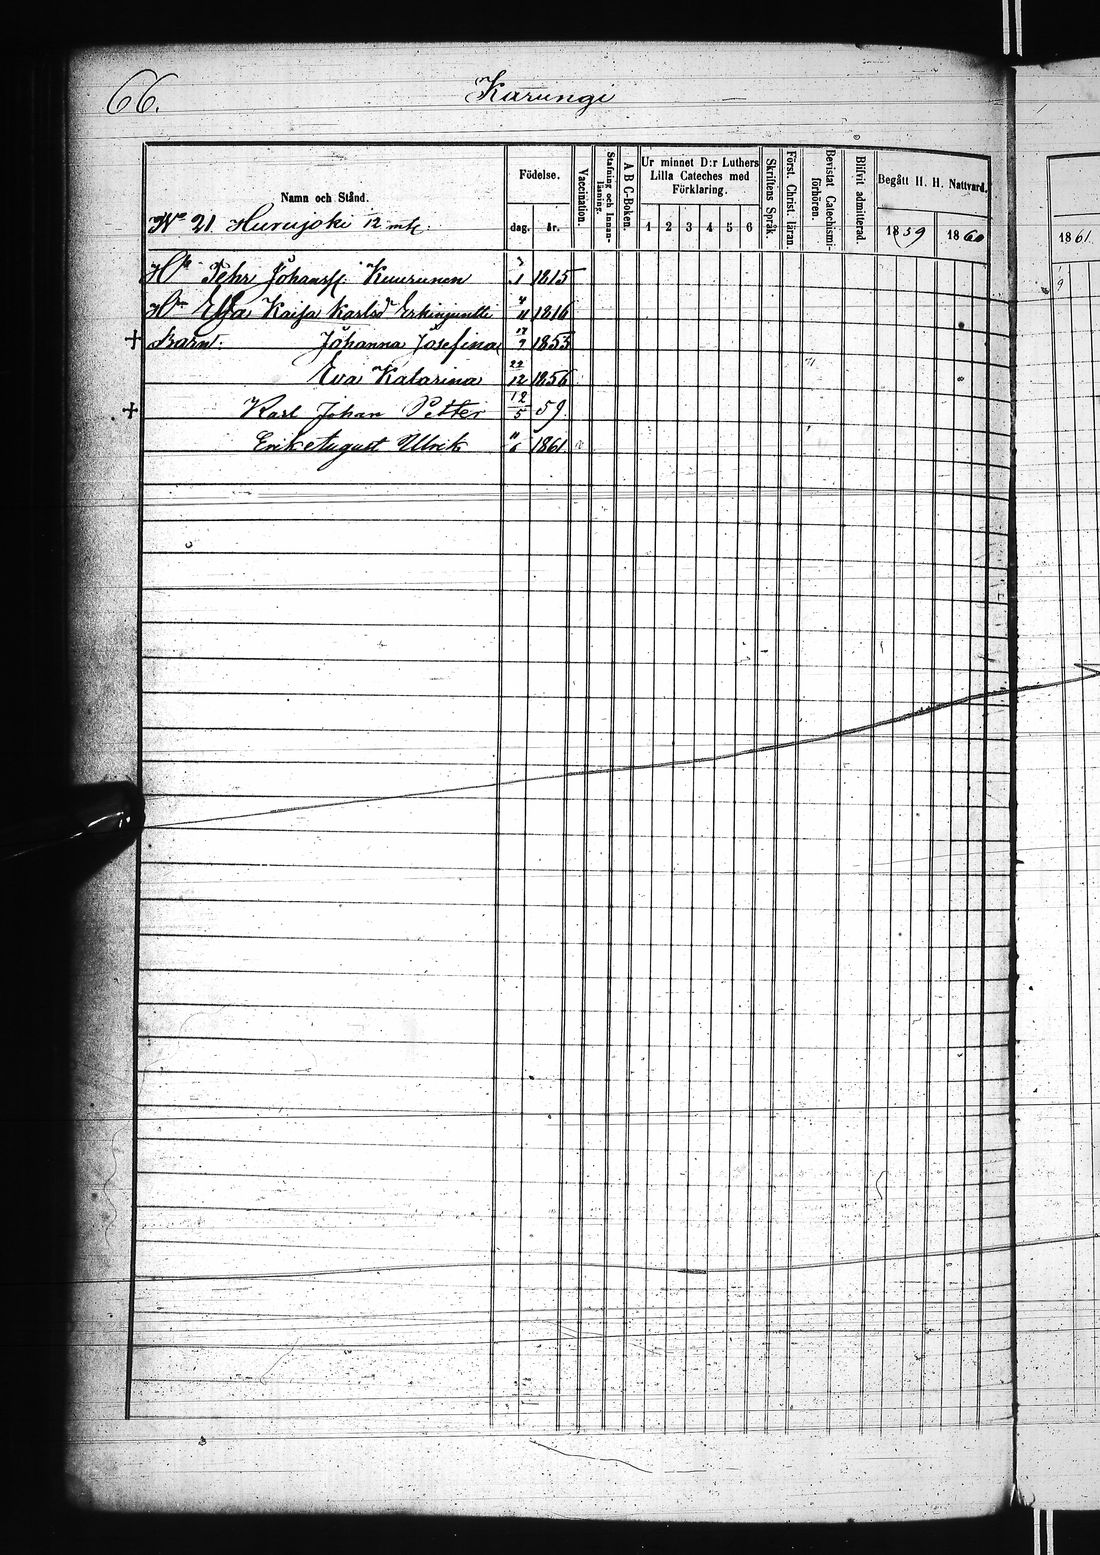 66.
Karungi
Namn och Stånd.
Födelse.
dag.
år.
Vaccination.
Stafning och Innanläsning.
A B C-Boken.
Ur minnet D:r Luthers
Lilla Cateches med
Förklaring.
1 2 3 4 5 6
Skriftens Språk.
Först. Christ. läran.
Bevistat Catechismi-
förhören.
Blifvit admitterad.
Begått H. H. Nattvard.
1859
1860
1861
No 21 Hurujoki 12 mtl.
Pehr Johanss. Kuurunen 1 1815
Kaisa Karlsd Erkinjuntti 1816
+ Barn: Johanna Josefina 1853
Eva Katarina 22/12 1856
+ Karl Johan Petter 12/5 59.
Erik August Ulrik 1861